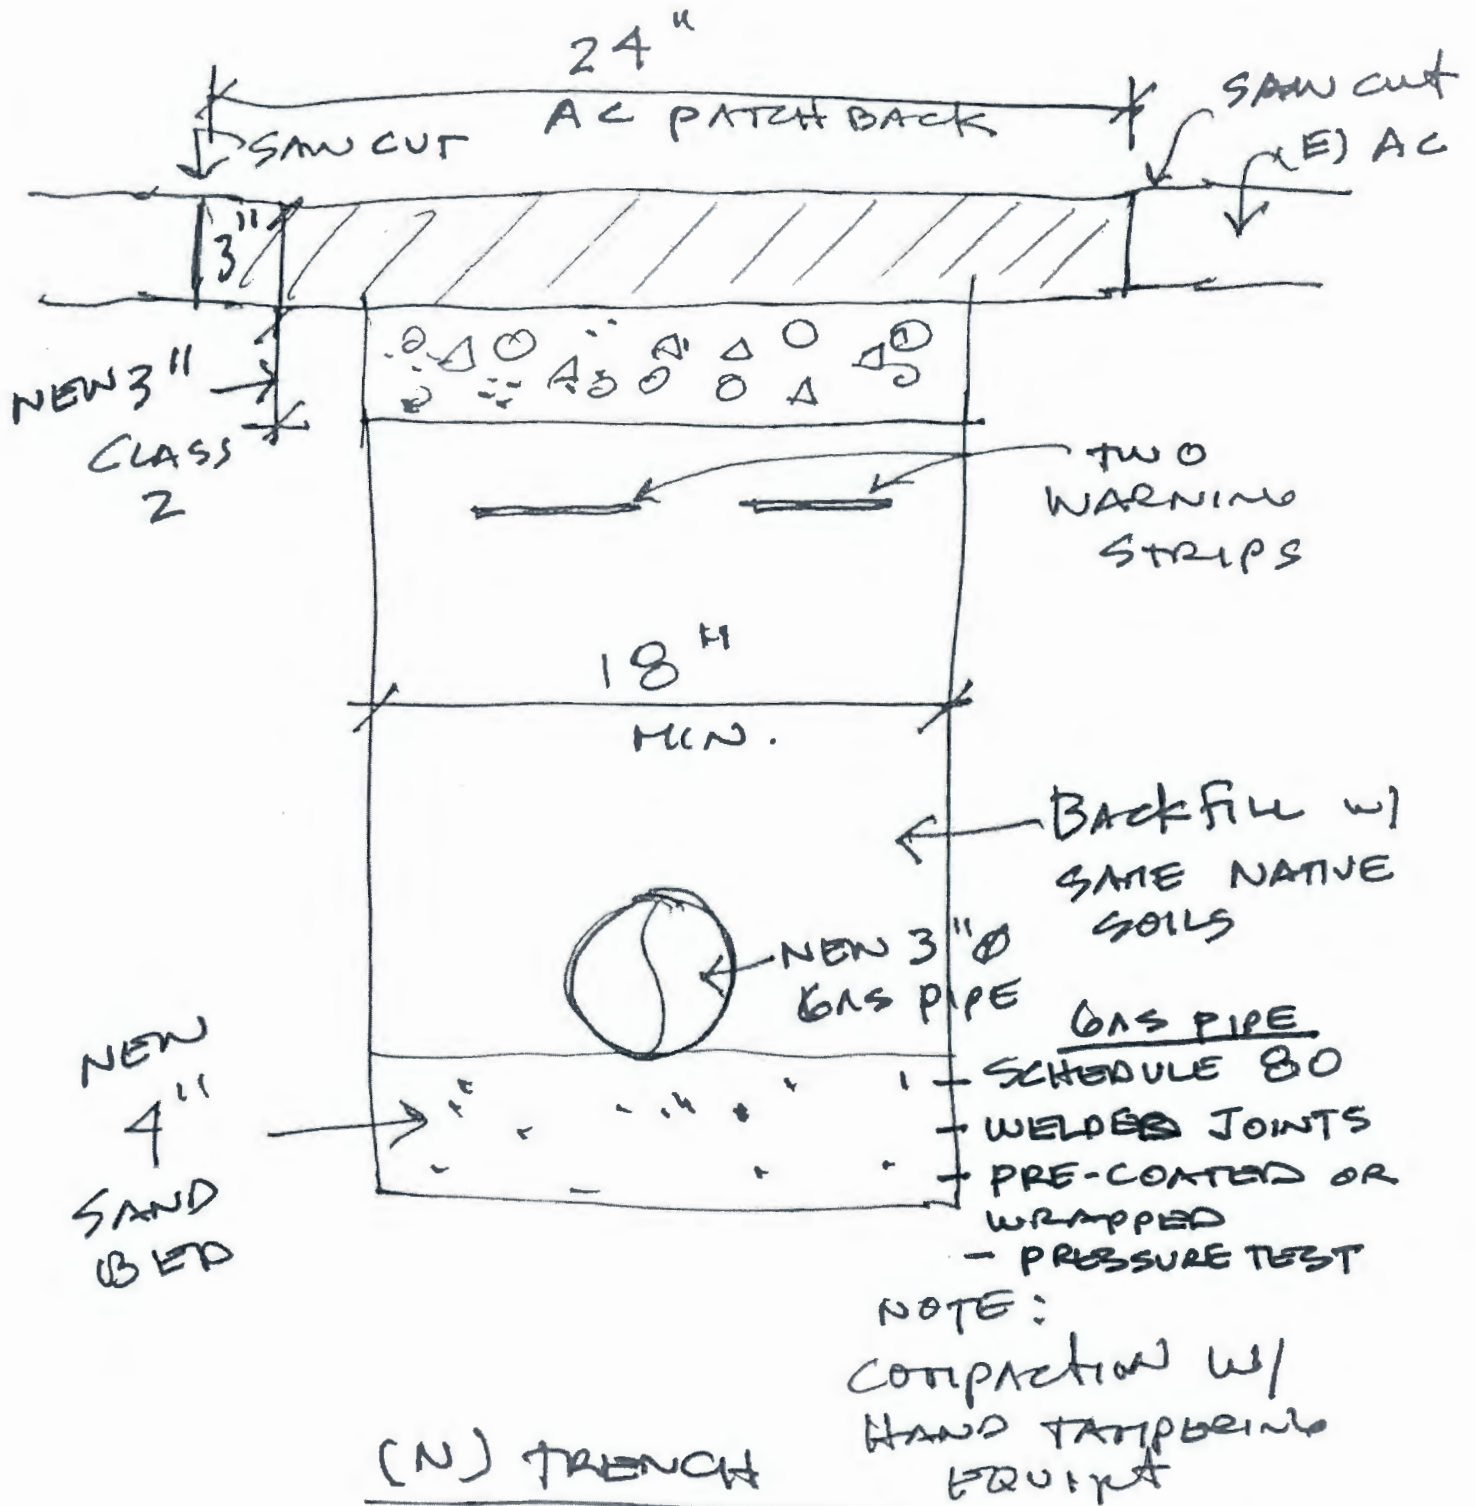 24"
AC PATCH BACK
SAW CUT
SAW CUT
(E) AC
3"
NEW 3"
CLASS
2
TWO
WARNING
STRIPS
18"
MIN.
BACKFILL W/
SAME NATIVE
SOILS
NEW 3"Ø
GAS PIPE
NEW
4"
SAND
BED
GAS PIPE
- SCHEDULE 80
- WELDED JOINTS
- PRE-COATED OR
WRAPPED
- PRESSURE TEST
NOTE:
COMPACTION W/
HAND TAMPERING
EQUIPT
(N) TRENCH